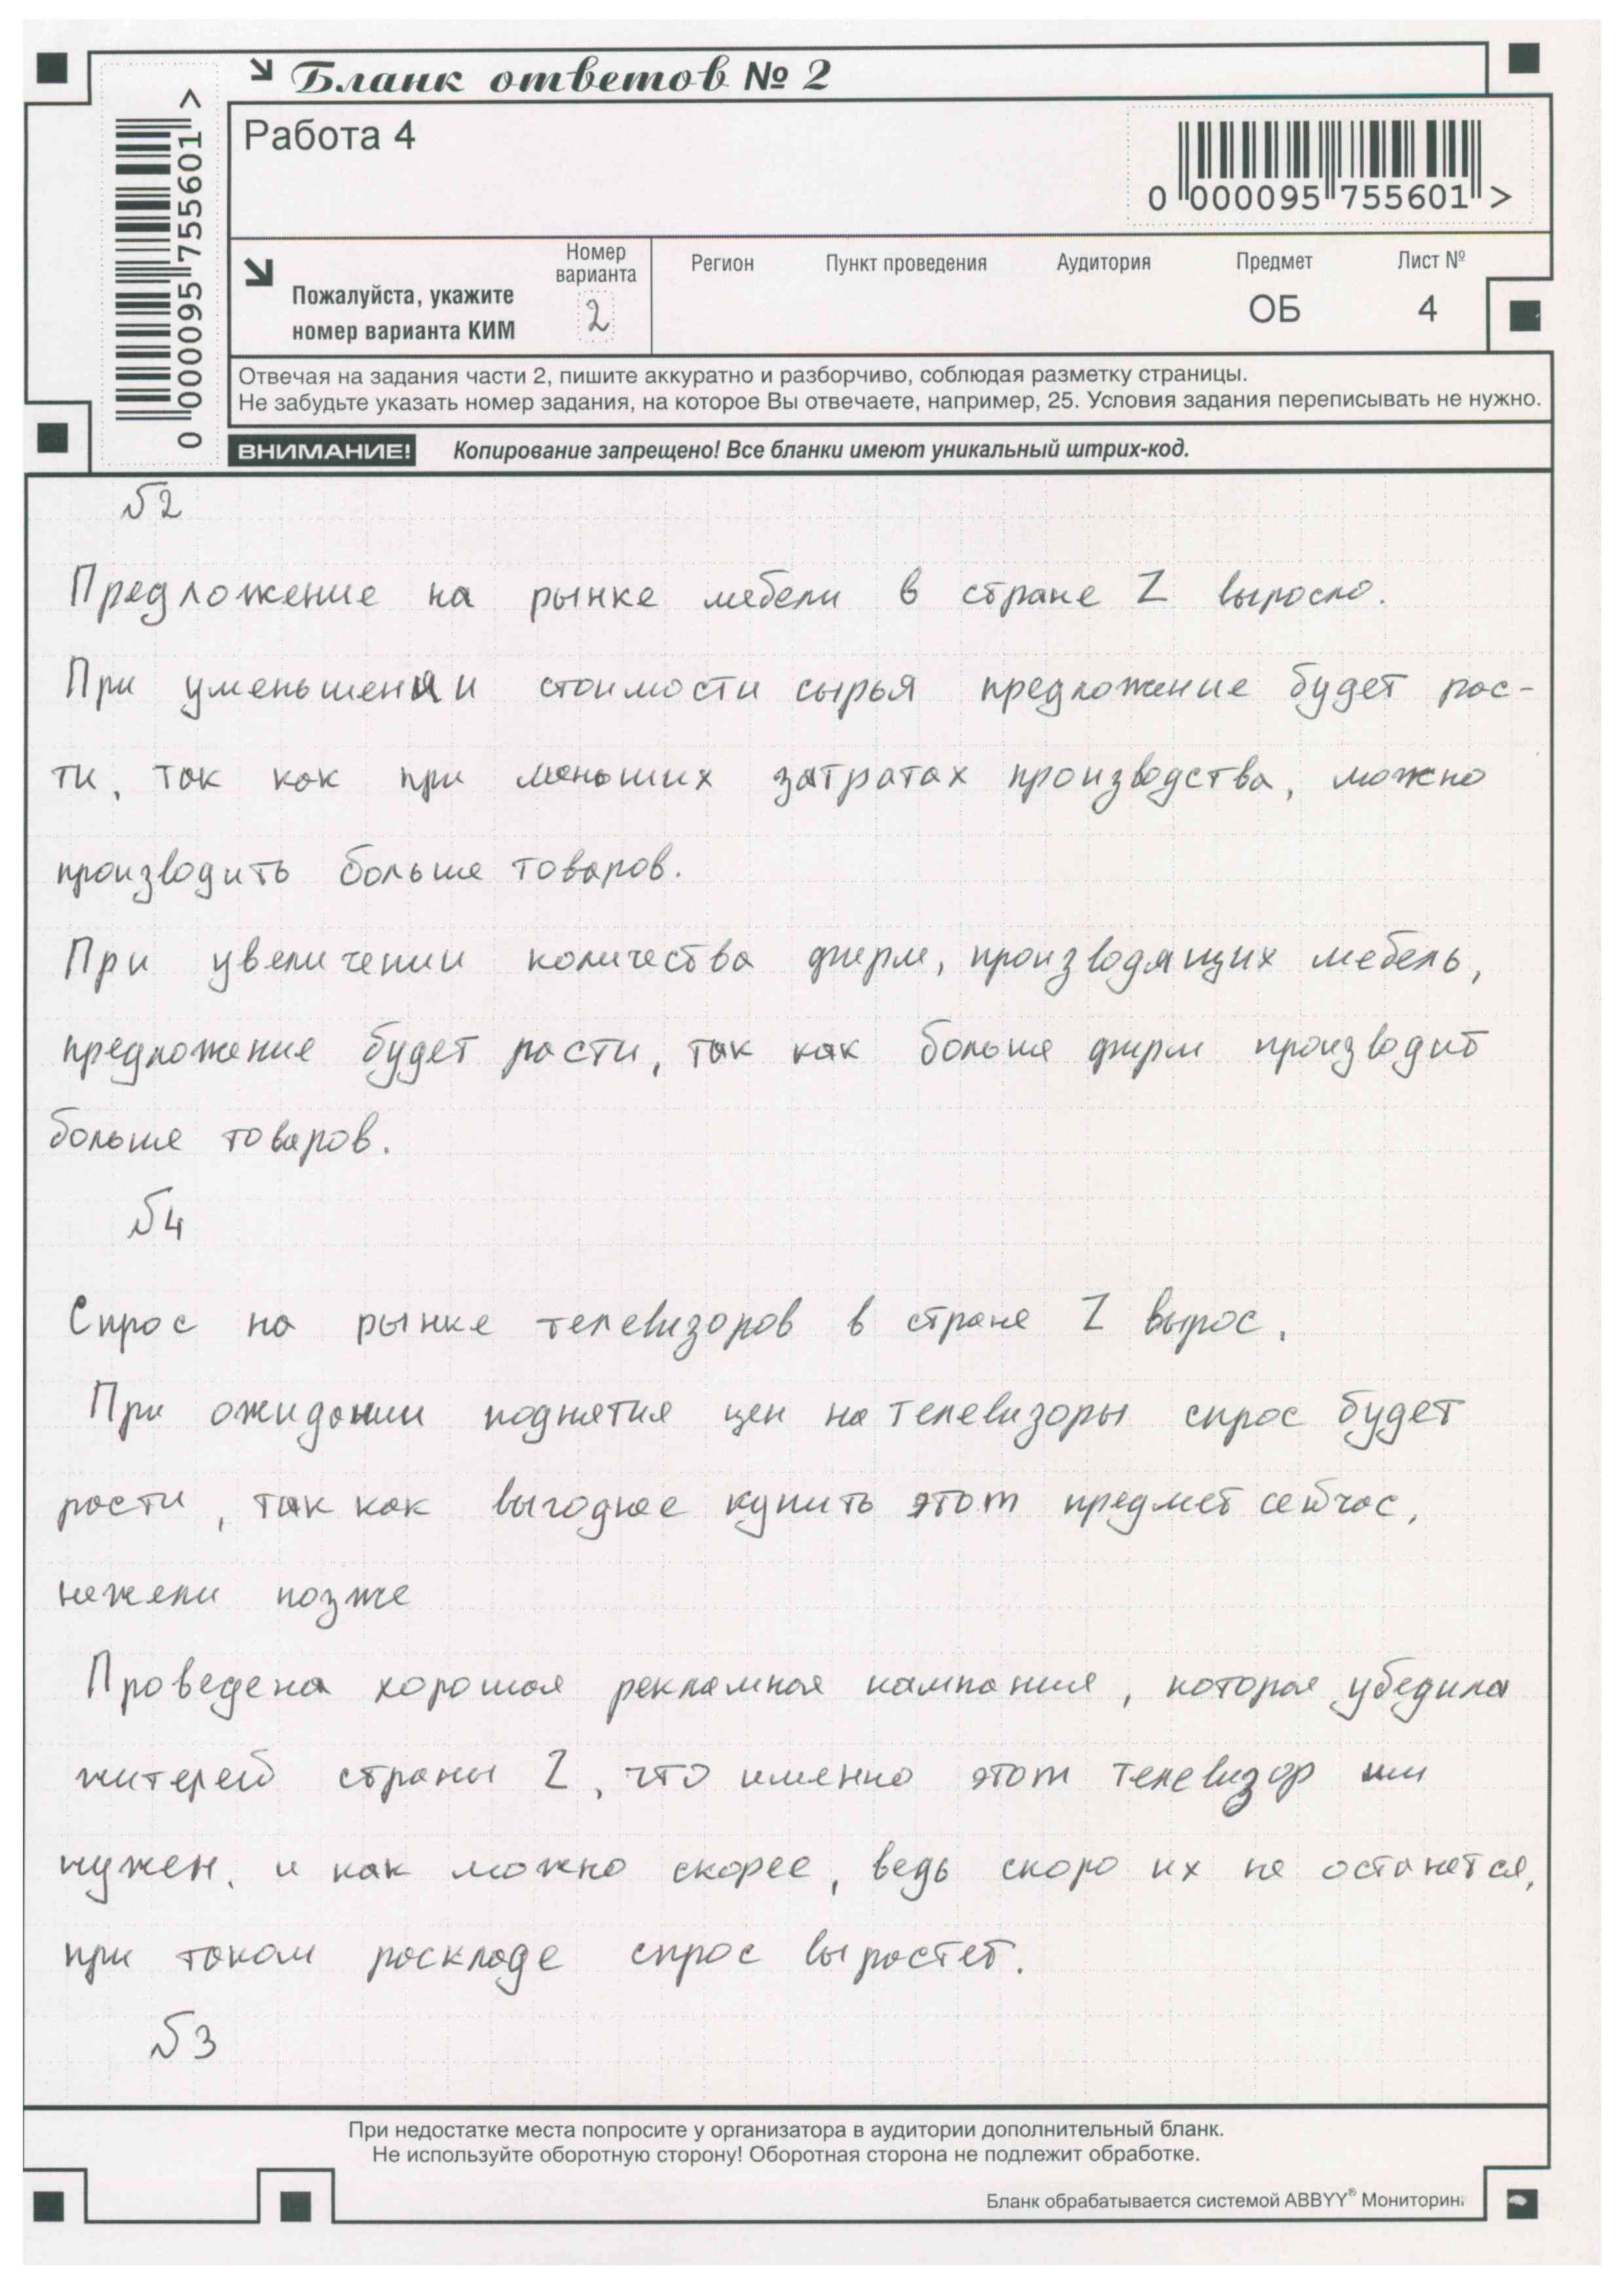 Бланк ответов № 2
Работа 4
0 000095 755601 >
0 000095 755601 >
Пожалуйста, укажите
номер варианта КИМ
Номер
варианта
2
Регион
Пункт проведения
Аудитория
Предмет
ОБ
Лист №
4
Отвечая на задания части 2, пишите аккуратно и разборчиво, соблюдая разметку страницы.
Не забудьте указать номер задания, на которое Вы отвечаете, например, 25. Условия задания переписывать не нужно.
ВНИМАНИЕ! Копирование запрещено! Все бланки имеют уникальный штрих-код.
№2
Предложение на рынке мебели в стране Z выросло.
При уменьшении стоимости сырья предложение будет рас-
ти, так как при меньших затратах производства, можно
производить больше товаров.
При увеличении количества фирм, производящих мебель,
предложение будет расти, так как больше фирм производит
больше товаров.
№4
Спрос на рынке телевизоров в стране Z вырос.
При ожидании поднятия цен на телевизоры спрос будет
рости, так как выгоднее купить этот предмет сейчас,
нежели позже
Проведена хорошая рекламная кампания, которая убедила
жителей страны Z, что именно этот телевизор им
нужен, и как можно скорее, ведь скоро их не останется,
при таком раскладе спрос вырастет.
№3
При недостатке места попросите у организатора в аудитории дополнительный бланк.
Не используйте оборотную сторону! Оборотная сторона не подлежит обработке.
Бланк обрабатывается системой ABBYY® Мониторинг